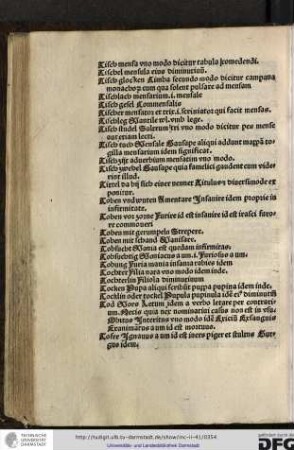 Tisch mensa vno modo dicitur tabula comedendi.
Tischel mensula eius diminutiuū.
Tisch glocken Cimba secundo modo dicitur campana
monachoꝝ cum qua solent pulsare ad mensam
Tischlach mensarium .i. mensale
Tisch gesel Commensalis
Tischer mensarius et scriniator qui facit mensas.
Tischleg Mantile vl. vnde lege.
Tisch studel Fulcrum vno modo dicitur pes mense
aut etiam lecti.
Tisch tuch Mensale Gausape aliqui addunt mappā
mensarium idem significat.
Tisch zijt aduerbium mensatim vno modo.
Tisch zwehel Gausape quia famelici gaudent cum vide-
rint illud.
Titel da bij sich einer nennet Titulus diuersimode ex
ponitur.
Toben vnduuten Amentare Insanire idem proprie in
infirmitate.
Toben vor zorne Furire id est insanire id est irasci furo-
re commoueri
Toben mit gerumpel Strepere.
Toben mit schand Manisare.
Tobsucht Mania est quedam infirmitas.
Tobsuchtig Maniacus a um .i. Furiosus a um.
Tobung Furia mania insania rabies idem
Tochter Filia nata vno modo idem inde.
Tochterlin Filiola diminutiuum
Tocken Puppa aliqui scribūt pupa pupina idem inde.
Tocklin oder tockel Pupula pupinula idē diminutiū
Tod Mors Letum idem a verbo
Necis quia nex nominatiui casus non est in vsu
Obitus Interitus vno modo idē Exicium Exsanguis
Exanimatus a um id est mortuus.
Tofer Ignauus a um id est iners piger et stultus
idem.
TECHNISCHE UNIVERSITÄT DARMSTADT
http://tudigit.ulb.tu-darmstadt.de/show/inc-ii-41/0354
Universitäts- und Landesbibliothek Darmstadt
DFG